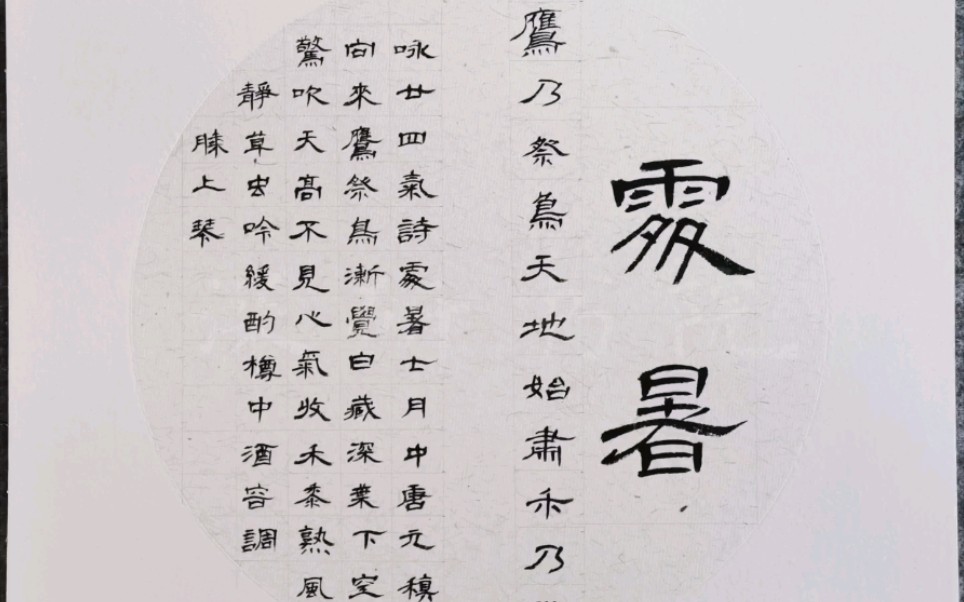 處暑
鷹乃祭鳥天地始肅禾乃
咏廿四氣詩處暑七月中唐元稹
向來鷹祭鳥漸覺白藏深葉下空
驚吹天高不見心氣收禾黍熟風
靜草虫吟緩酌樽中酒容調
膝上琴